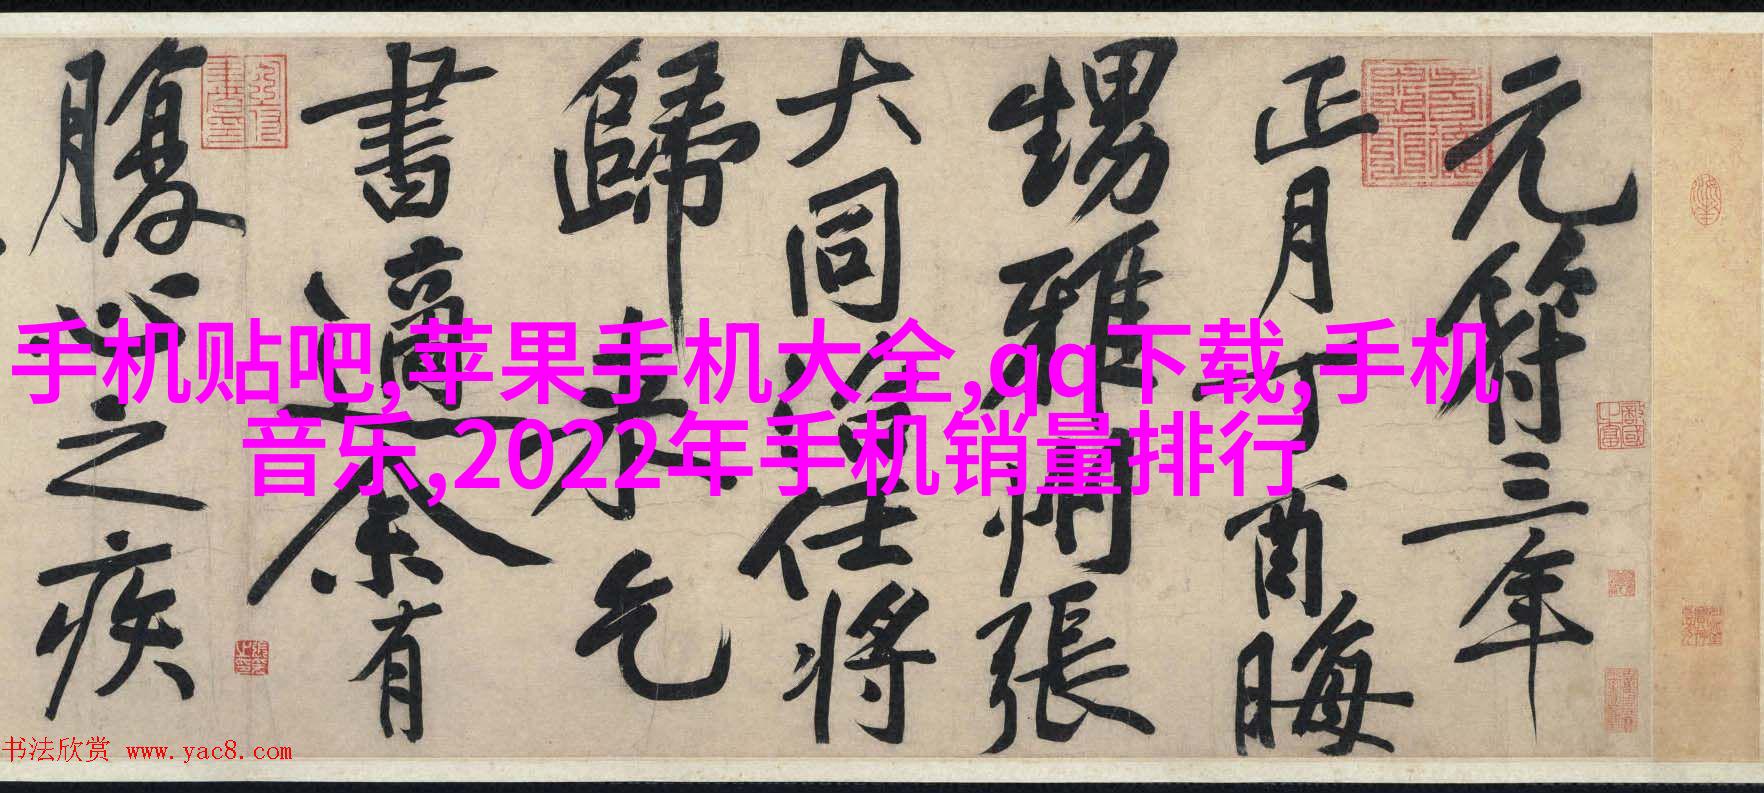 元符三年
正月丁酉晦
甥雅州張
大同治任將
歸來乞
書適余有
腹心之疾
手机贴吧,苹果手机大全,qq下载,手机
音乐,2022年手机销量排行
书法欣赏 www.yac8.com